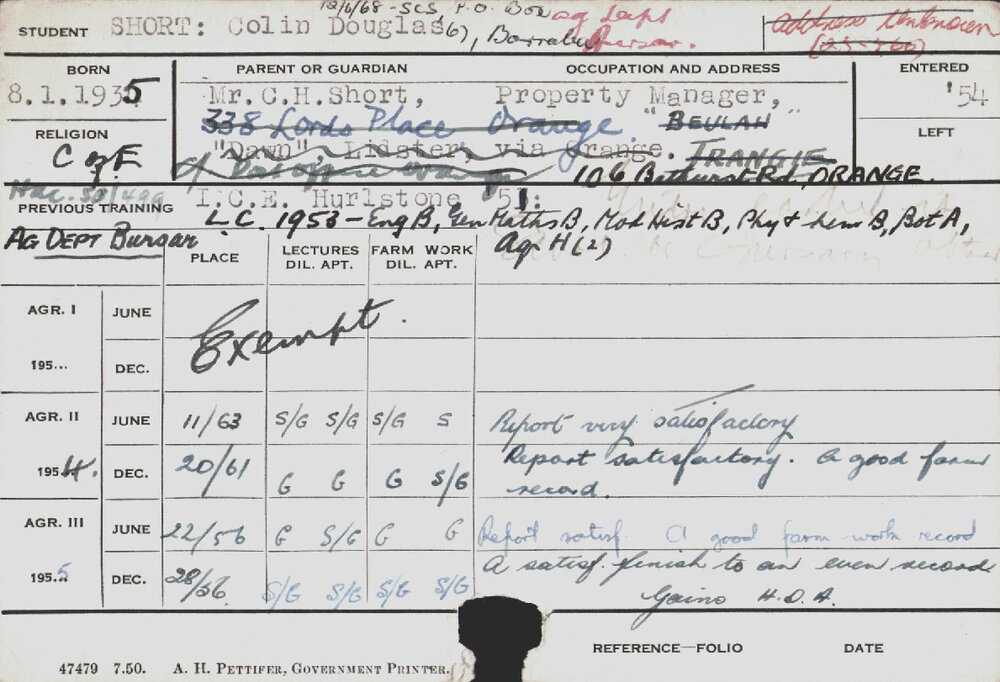 12/6/68 - SCS P.O. Box Ag Dept
STUDENT SHORT: Colin Douglas (6), Bursar. Address Unknown
BORN PARENT OR GUARDIAN OCCUPATION AND ADDRESS ENTERED
8.1.1935 Mr. C.H.Short, Property Manager, '54
338 Lords Place Orange. "BEULAH"
RELIGION "Dawn", Lidster, via Orange. TRANGIE LEFT
C of E c/ Post office Orange 106 Bathurst Rd, ORANGE.
I.C.E. Hurlstone '51:
PREVIOUS TRAINING L.C. 1953 - Eng B, Gen Maths B, Mod Hist B, Phy + Chem B, Bot A,
AG DEPT Bursar Agr H (2)
PLACE LECTURES FARM WORK
DIL. APT. DIL. APT.
AGR. I JUNE
Exempt.
195... DEC.
AGR. II JUNE 11/63 S/G S/G S/G S Report very satisfactory
1954. DEC. 20/61 G G G S/G Report satisfactory. A good farm
record.
AGR. III JUNE 22/56 G S/G G G Report satisf. A good farm work record
1955 DEC. 28/56 S/G S/G S/G S/G A satisf. finish to an even record
Gains H.D.A.
REFERENCE—FOLIO DATE
47479 7.50. A. H. PETTIFER, GOVERNMENT PRINTER.